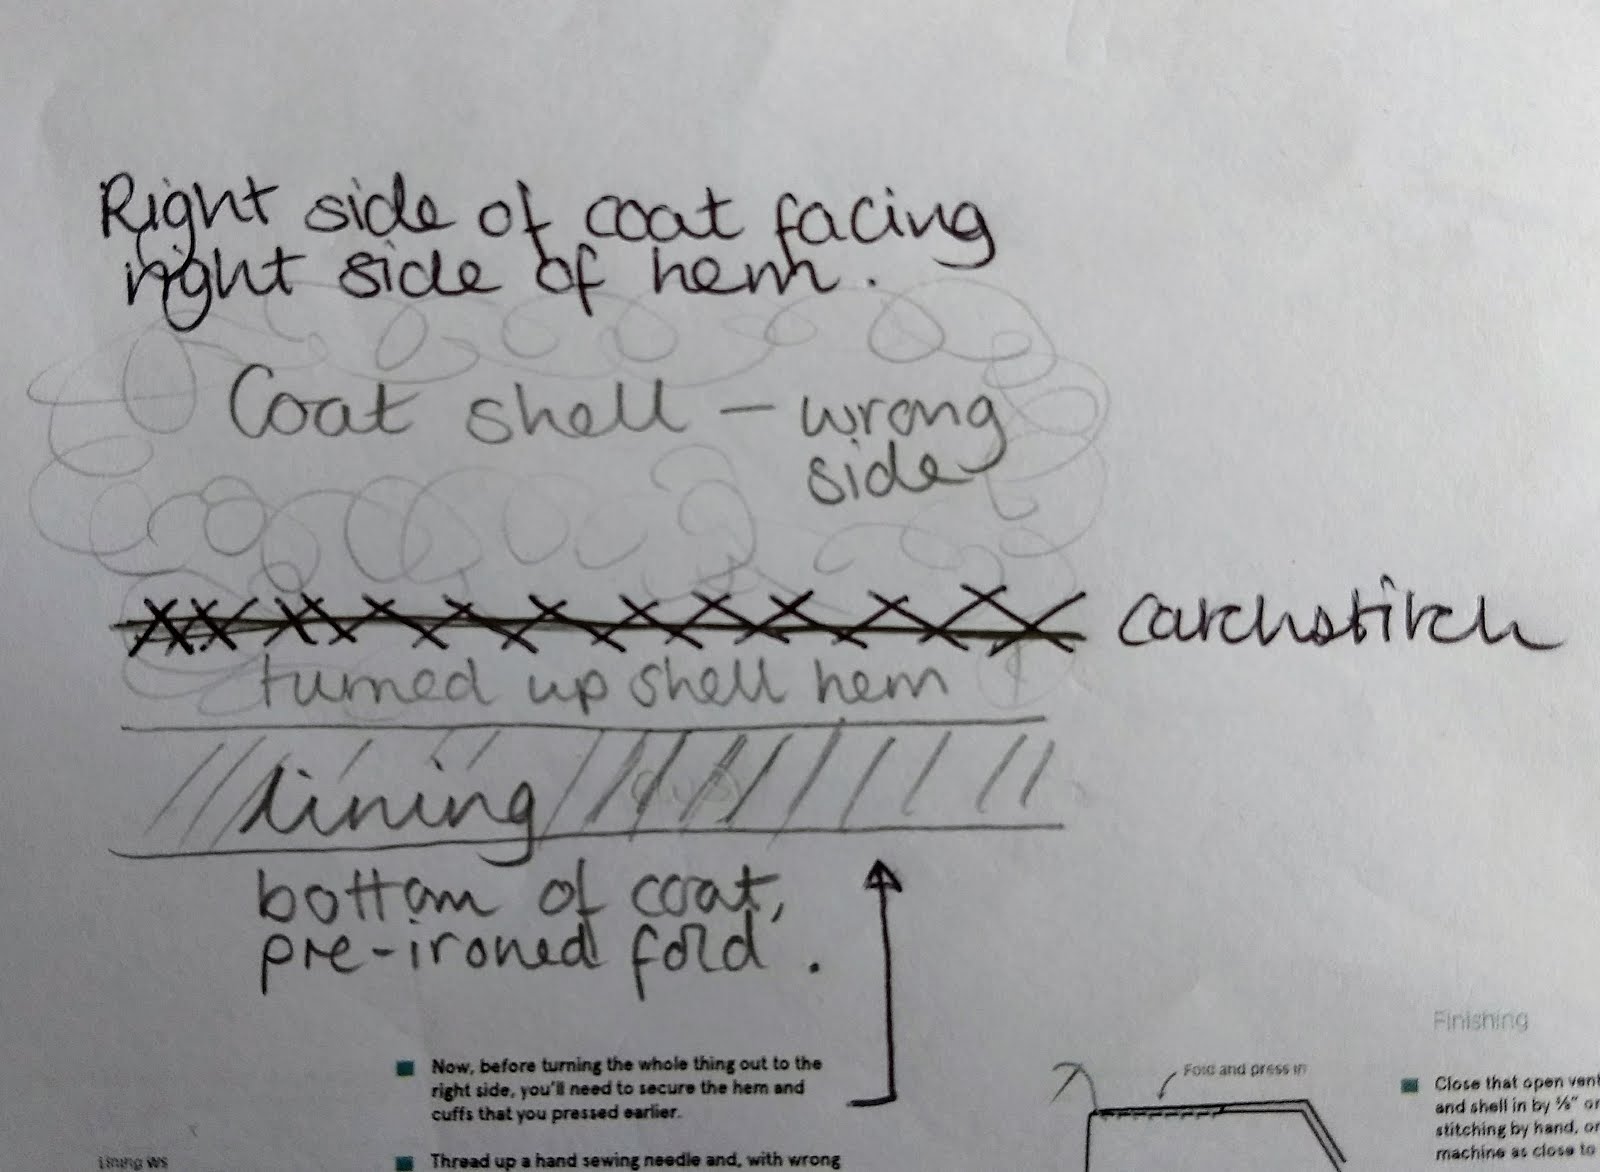 Right side of coat facing
right side of hem.
Coat shell – wrong
side
catchstitch
turned up shell hem
lining
bottom of coat,
pre-ironed fold.
Now, before turning the whole thing out to the
right side, you'll need to secure the hem and
cuffs that you pressed earlier.
Thread up a hand sewing needle and, with wrong
Lining WS
Fold and press in
Finishing
Close that open vent
and shell in by ⅝" or
stitching by hand, or
machine as close to